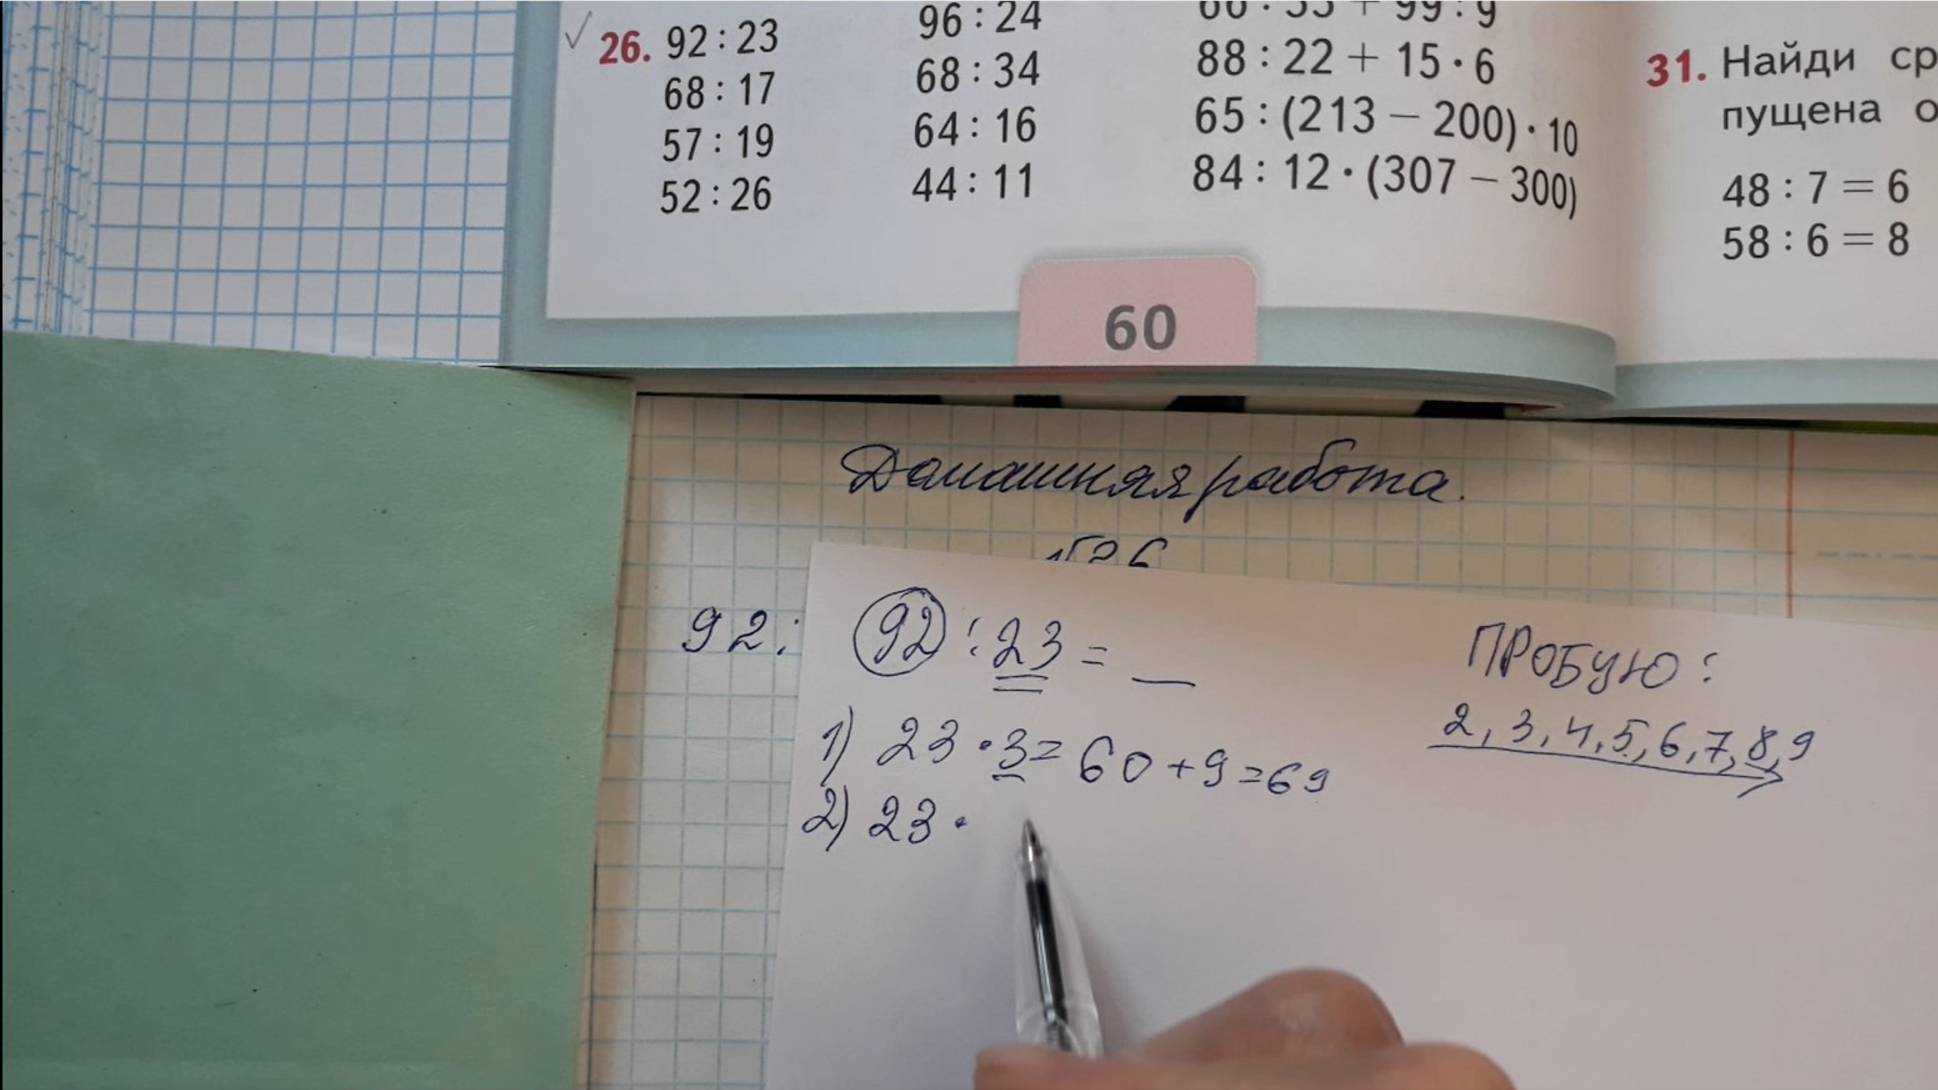 26. 92 : 23
68 : 17
57 : 19
52 : 26
96 : 24
68 : 34
64 : 16
44 : 11
88 : 22 + 15 · 6
65 : (213 − 200) · 10
84 : 12 · (307 − 300)
60
31. Найди ср
пущена о
48 : 7 = 6
58 : 6 = 8
Домашняя работа.
92:
92 : 23 = __
1) 23 · 3 = 60 + 9 = 69
2) 23 ·
ПРОБУЮ:
2, 3, 4, 5, 6, 7, 8, 9